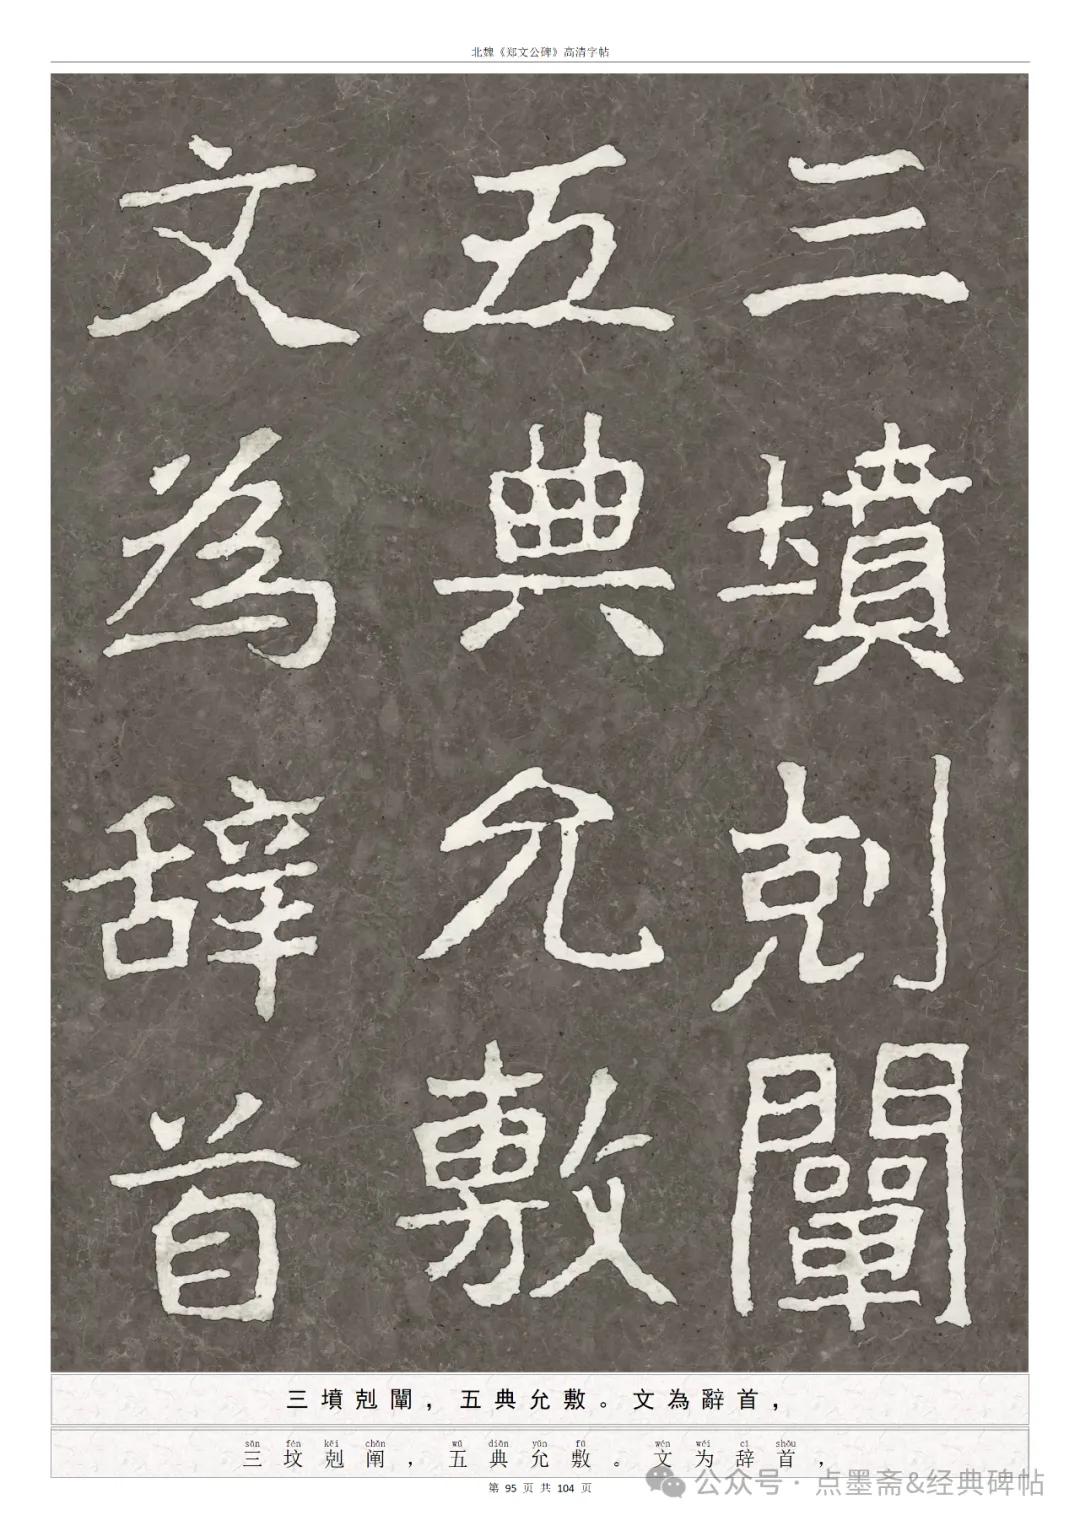 北魏《郑文公碑》高清字帖
三墳剋闡
五典允敷
文為辭首
三墳剋闡，五典允敷。文為辭首，
sān fén kēi chǎn wǔ diǎn yǔn fū wén wéi cí shǒu
三坟剋阐，五典允敷。文为辞首，
第 95 页 共 104 页
公众号·点墨斋&经典碑帖